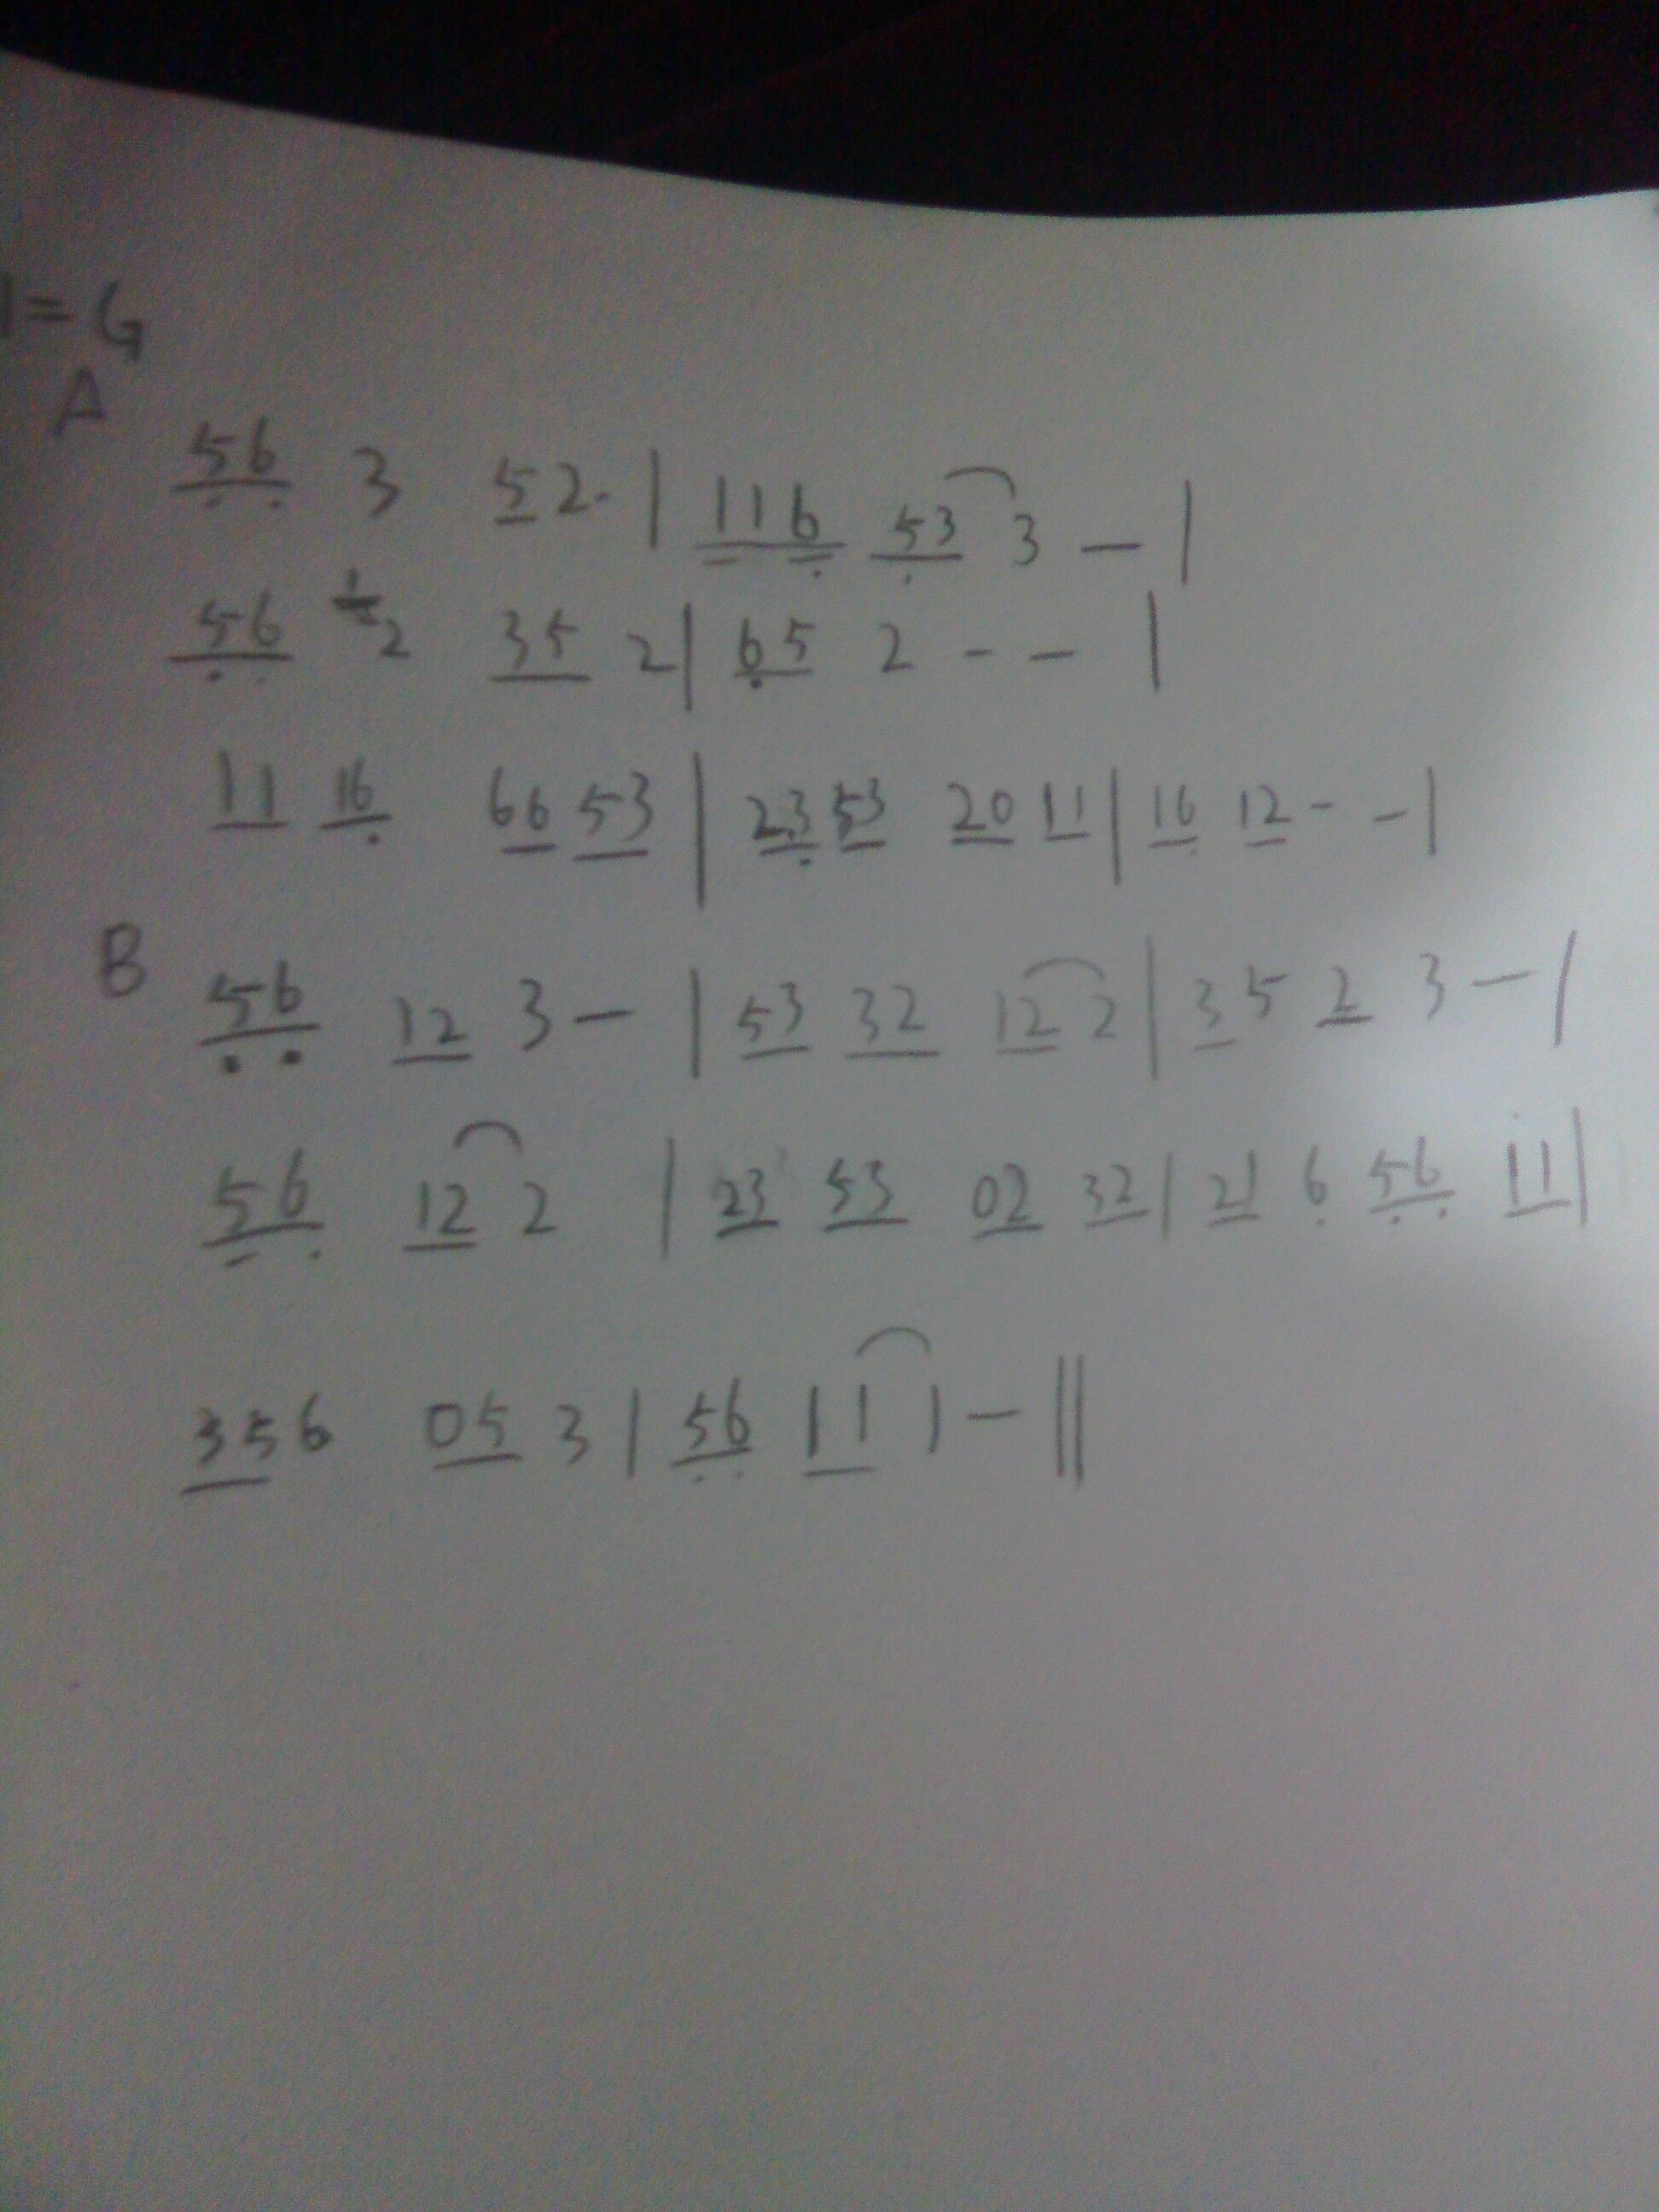 1=G
A
56 3 52· | 116 53 3 — |
56 ½2 35 2 | 65 2 - - |
11 16 66 53 | 23 53 20 11 | 16 12 - - |
B 56 12 3 — | 53 32 12 2 | 35 2 3 — |
56 12 2 | 23 53 02 32 | 21 6 56 11 |
356 05 3 | 56 11 1 — ‖